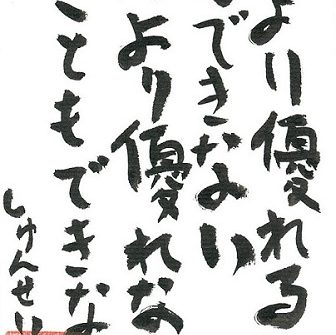 より優れる
できない
より優れなの
ともできな
しゅんせい